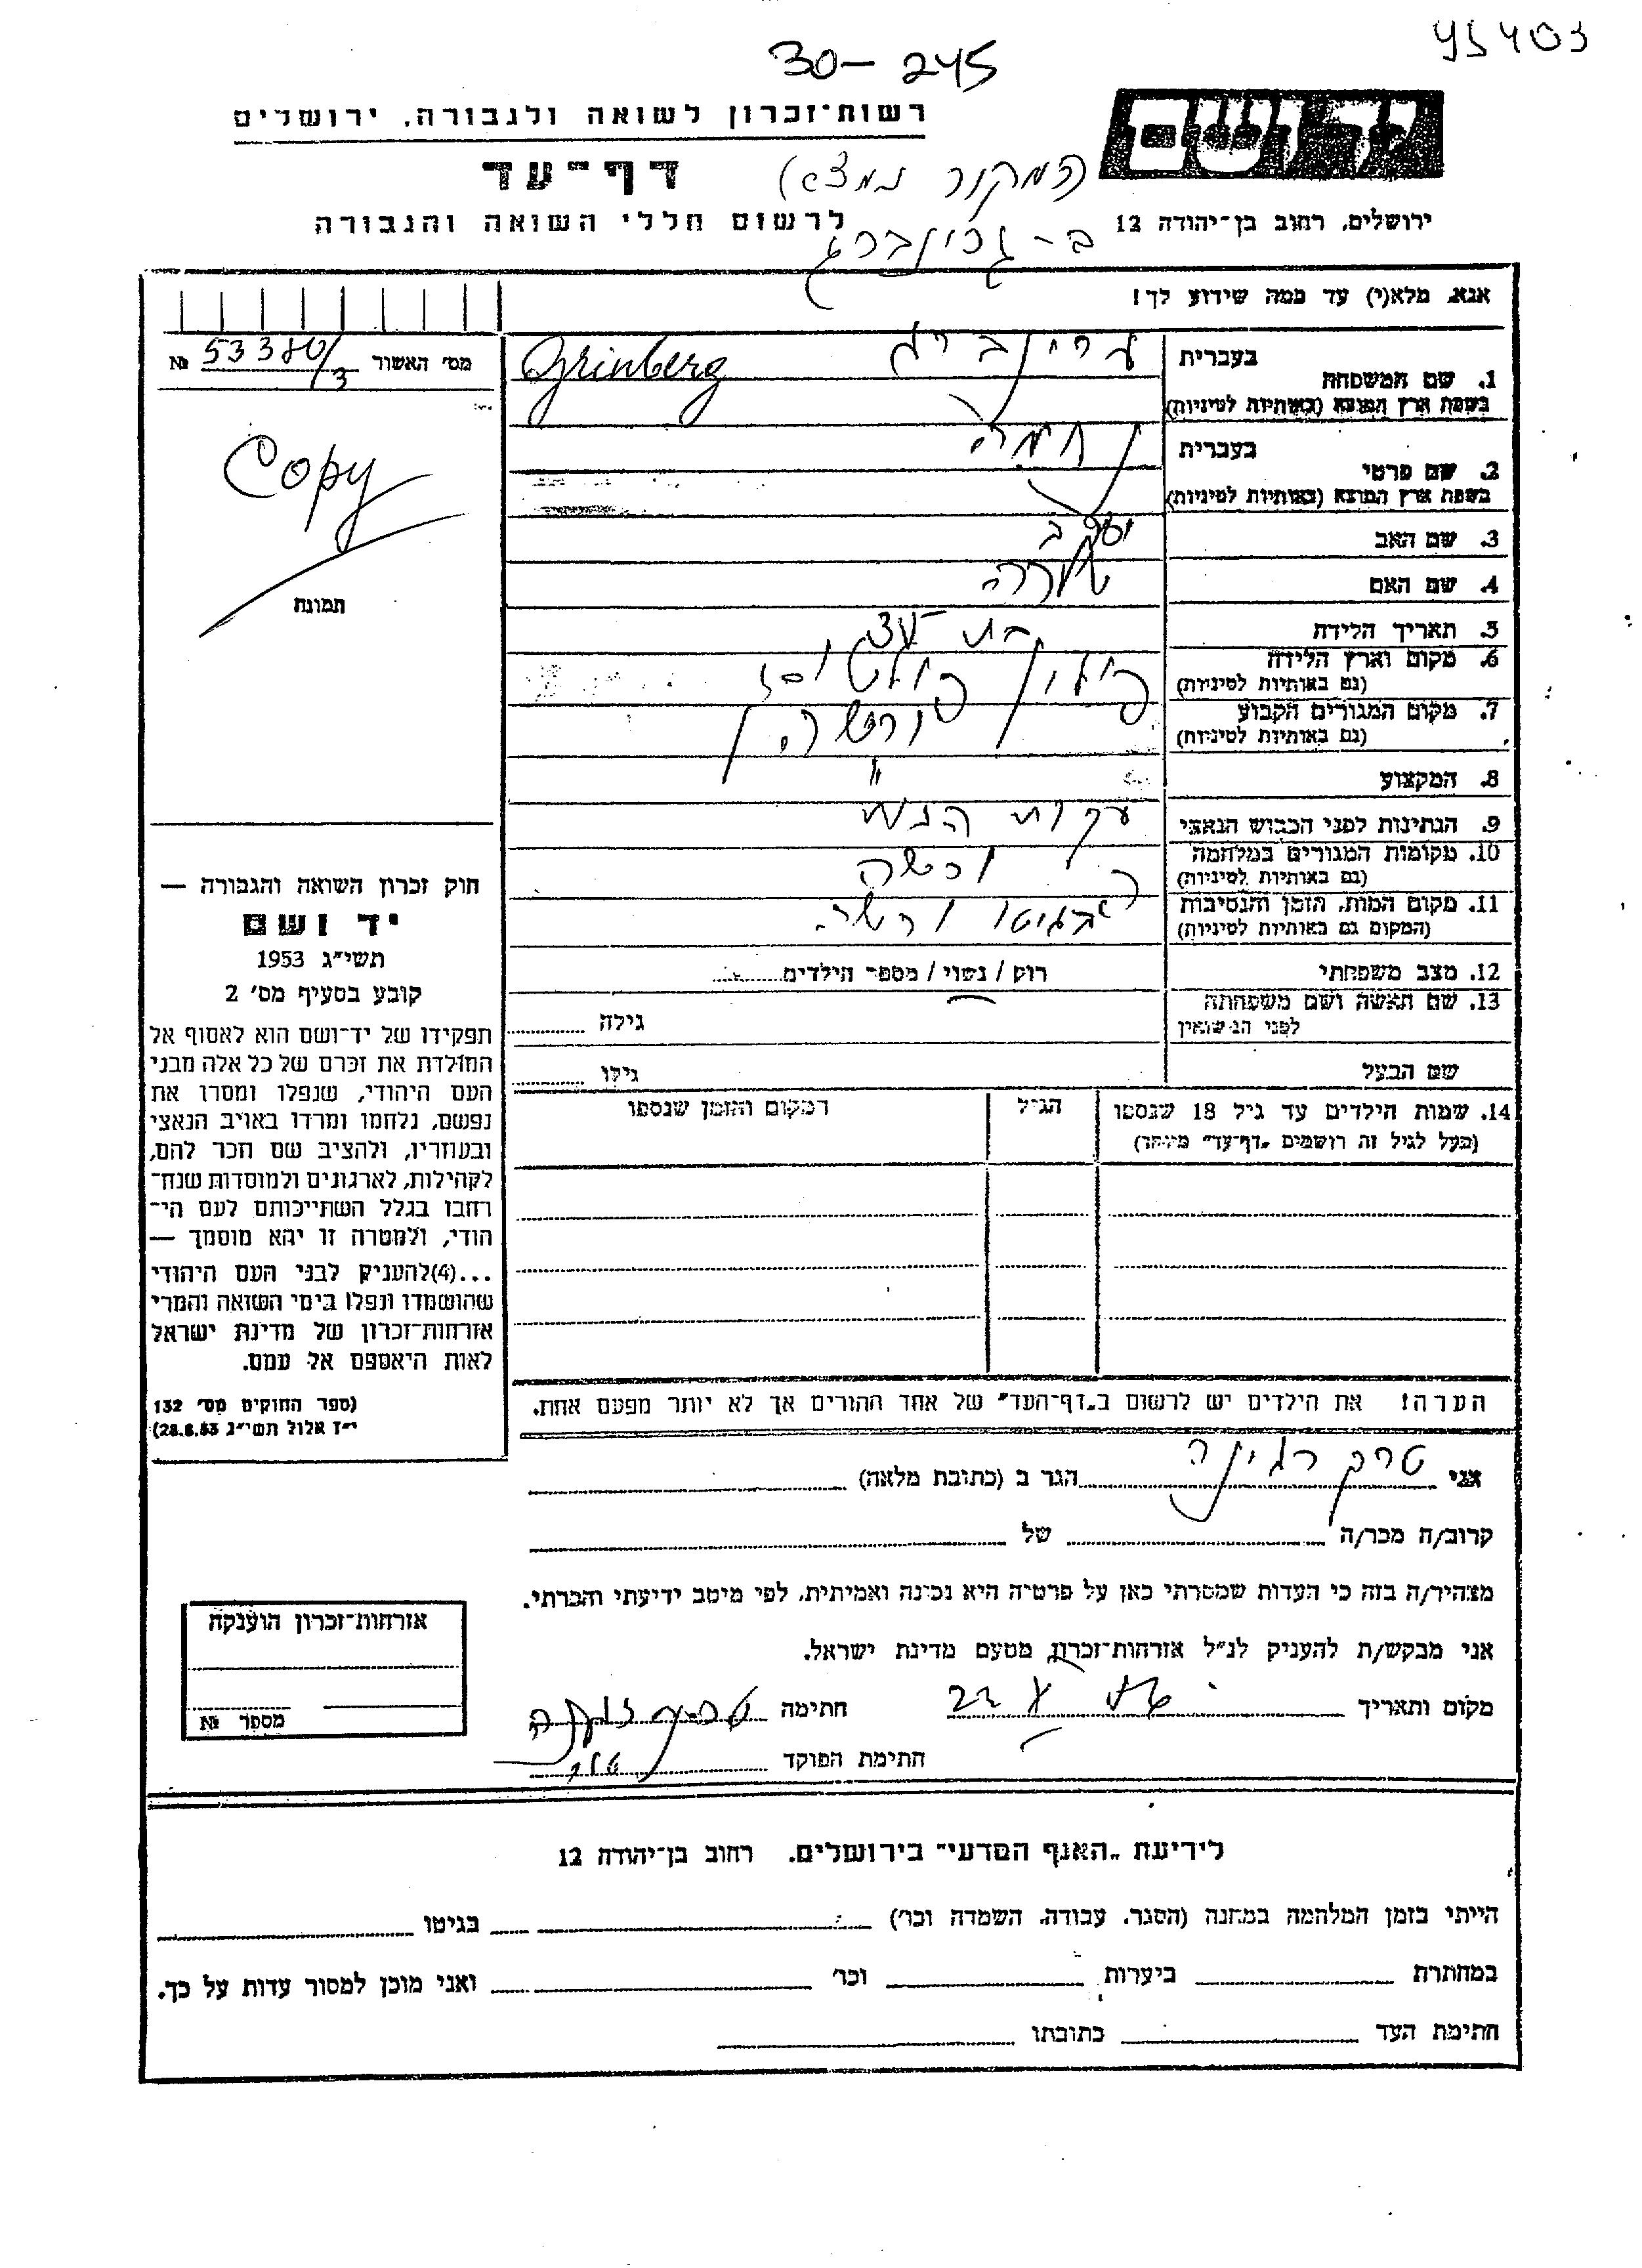 30-245
רשות־זכרון לשואה ולגבורה, ירושלים
יד ושם
דף־עד
(המקור נמצא
לרשום חללי השואה והגבורה
ב- גרינברג
ירושלים, רחוב בן־יהודה 12
אנא, מלא(י) עד כמה שידוע לך!
מס' האשור 53380/3 №
Copy
תמונה
1. שם המשפחה
בעברית גרינברג
בשפת ארץ המוצא (באותיות לטיניות) Grinberg
2. שם פרטי
בעברית נחמה
בשפת ארץ המוצא (באותיות לטיניות)
3. שם האב יעקב
4. שם האם שרה
5. תאריך הלידה
6. מקום וארץ הלידה פולין פולטוסק
(גם באותיות לטיניות)
7. מקום המגורים הקבוע ורשה
(גם באותיות לטיניות)
8. המקצוע "
9. הנתינות לפני הכבוש הנאצי עקרת הבית
10. מקומות המגורים במלחמה ורשה
(גם באותיות לטיניות)
11. מקום המות, הזמן והנסיבות בגיטו ורשה
(המקום גם באותיות לטיניות)
12. מצב משפחתי רוק / נשוי / מספר הילדים
13. שם האשה ושם משפחתה
לפני הנישואין
גילה
שם הבעל גילו
14. שמות הילדים עד גיל 18 שנספו הגיל המקום והזמן שנספו
(מעל לגיל זה רושמים "דף־עד" מיוחד)
הערה! את הילדים יש לרשום ב"דף־העד" של אחד ההורים אך לא יותר מפעם אחת.
חוק זכרון השואה והגבורה —
יד ושם
תשי"ג 1953
קובע בסעיף מס' 2
תפקידו של יד־ושם הוא לאסוף אל
המולדת את זכרם של כל אלה מבני
העם היהודי, שנפלו ומסרו את
נפשם, נלחמו ומרדו באויב הנאצי
ובעוזריו, ולהציב שם וזכר להם,
לקהילות, לארגונים ולמוסדות שנח־
רחבו בגלל השתייכותם לעם הי־
הודי, ולמטרה זו יהא מוסמך —
...(4)להעניק לבני העם היהודי
שהושמדו ונפלו בימי השואה והמרי
אזרחות־זכרון של מדינת ישראל
לאות היאספם אל עמם.
(ספר החוקים מס' 132
י"ז אלול תשי"ג 28.8.53)
אני טרק רגינה הגר ב (כתובת מלאה)
קרוב/ה מכר/ה של
מצהיר/ה בזה כי העדות שמסרתי כאן על פרטיה היא נכונה ואמיתית, לפי מיטב ידיעתי והכרתי.
אני מבקש/ת להעניק לנ"ל אזרחות־זכרון מטעם מדינת ישראל.
מקום ותאריך חתימה
חתימת הפוקד
אזרחות־זכרון הוענקה
מספר №
לידיעת "האגף המדעי" בירושלים, רחוב בן־יהודה 12
הייתי בזמן המלחמה במחנה (הסגר, עבודה, השמדה וכו') בגיטו
במחתרת ביערות וכו' ואני מוכן למסור עדות על כך.
חתימת העד כתובתו